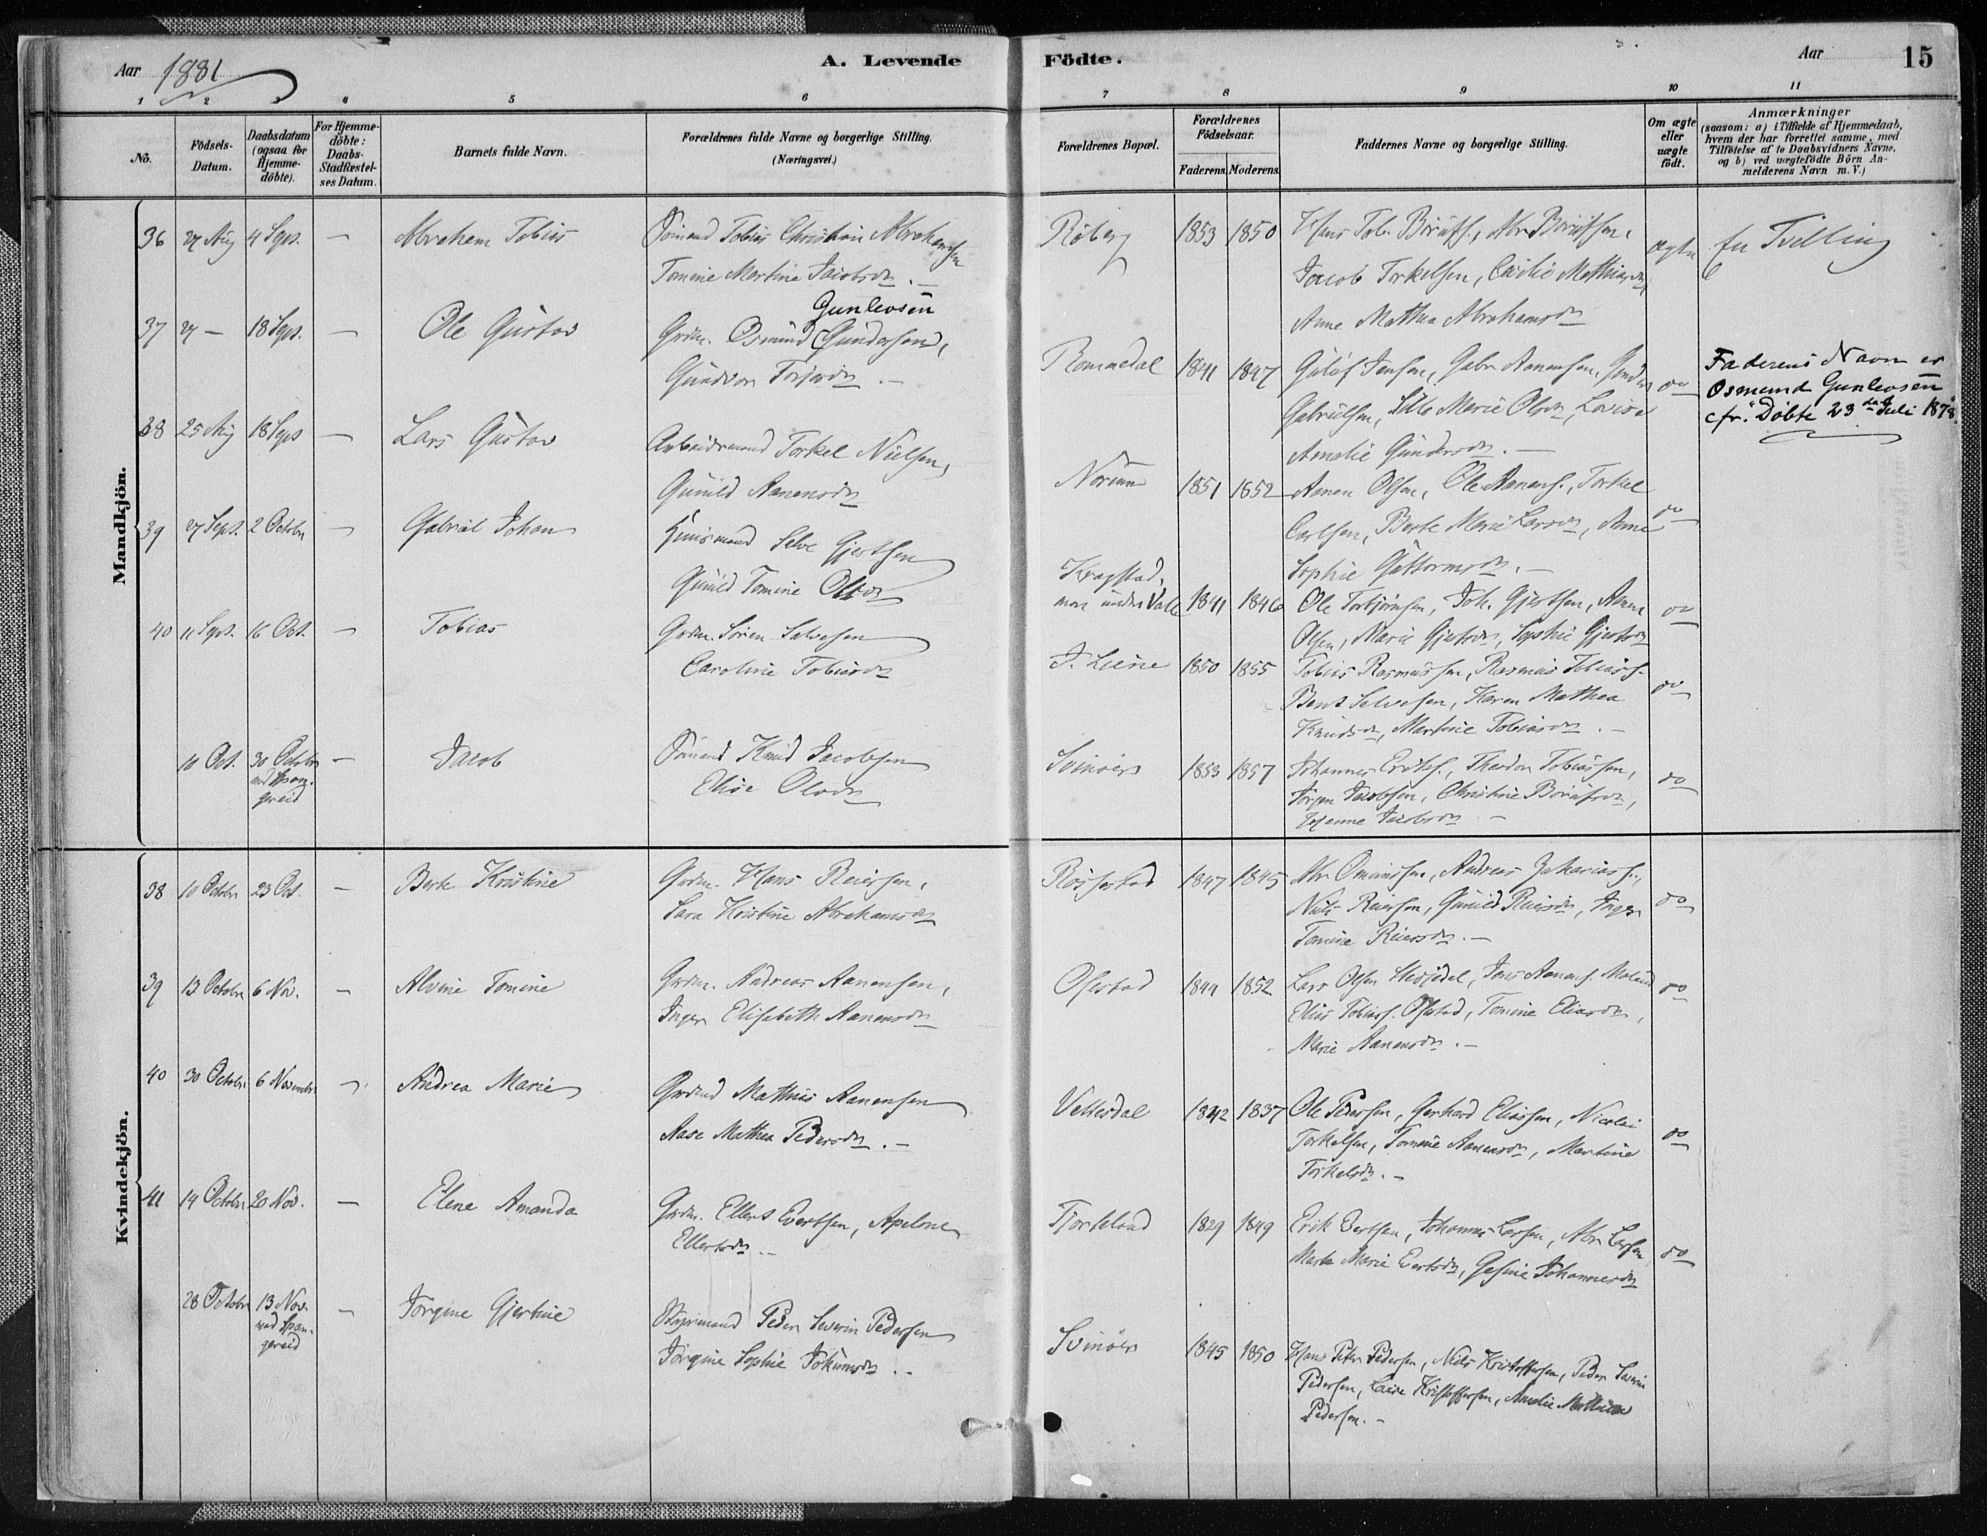 Aar 1881
A. Levende
Födte.
Aar
15
1 2 3 4 5 6 7 8 9 10 11
No.
Födsels-
Datum.
Daabsdatum
(ogsaa for
Hjemme-
döbte).
For Hjemme-
döbte:
Daabs-
Stadfæstel-
ses Datum.
Barnets fulde Navn.
Forældrenes fulde Navne og borgerlige Stilling.
(Næringsvei.)
Forældrenes Bopæl.
Forældrenes
Födselsaar.
Faderens. Moderens.
Faddernes Navne og borgerlige Stilling.
Om ægte
eller
uægte
födt.
Anmærkninger
(saasom: a) i Tilfælde af Hjemmedaab,
hvem der har forrettet samme, med
Tilföielse af to Daabsvidners Navne,
og b) ved uægtefödte Börn An-
melderens Navn m. V.)
Mandkjön.
36 27 Aug 4 Sept. — Abraham Tobias
Sömand Tobias Christian Abrahamsen
Tomine Martine Jacobsdr. —
Röberg 1853 1850
Hans Tob. Börufs., Abr Börufsen,
Jacob Torkelsen, Cecilie Mathiasdr,
Anne Mathea Abrahamsdr
ægte
En Tvilling
37 27 — 18 Sept. — Ole Gustav
Gunlevsen
Grdm. Osmund Gundersen,
Gundvor Torjersdr. —
Rommedal 1841 1847
Gabr Aanensen,
Gabrielsen, Sille Marie Olsdr, Lovise
Amalie Gundersdr. —
do
Faderens Navn er
Osmund Gunlevsen
cfr. Döbte 23de Juli 1878.
38 25 Aug 18 Sept — Lars Gustav
Arbeidsmand Torkel Nielsen,
Gunild Aanensdr
Norum 1851 1852
Aanen Olsen, Ole Aanens., Torkel
Carlsen, Berte Marie Larsdr, Anne
Sophie Guttormsdr. —
do
39 27 Sept. 2 Octobr — Gabriel Johan
Huusmand Salve Gjertsen
Gunild Tomine Olsdr
Kragstad,
nor under Valle 1841 1846
Ole Torbjörnsen, Joh. Gjertsen, Aanen
Olsen, Marie Gjertsdr, Sophie Gjertsdr
do
40 11 Sept. 16 Oct. — Tobias
Grdm. Sören Salvesen
Caroline Tobiasdr
1850 1855
Tobias Rasmussen, Rasmus Tobiass.
Bent Salvesen, Karen Mathea
Knudsdr, Martine Tobiasdr. —
do
10 Oct. 30 Octobr
ved Span-
gereid
— Jacob
Sömand Knud Jacobsen
Elise Olsdr
Svinöer 1853 1857
Johannes Eriks., Theodor Tobiassen,
Jörgen Jacobsen, Christine Börufsdr,
Johanne Jacobsdr —
do
Kvindekjön.
38 10 Octobr 23 Oct. — Berte Kristine
Grdm. Hans Reiersen,
Sara Kristine Abrahamsdr
Rösserstad 1847 1845
Abr Omundsen, Andreas Zakariass.,
Niels Reiersen, Gunild Reiersdr, Inger
Tomine Reiersdr. —
do
39 13 Octobr 6 Nov. — Alvine Tomine
Grdm. Andreas Aanensen,
Inger Elisabeth Aanensdr
Ofestad 1844 1852
Lars Olsen Hesjedal, Jens Aanens.
Elias Tobiass. Ofstad, Tomine Eliasdr,
Marie Aanensdr. —
do
40 30 Octobr. 6 Novembr. — Andrea Marie
Grdmd Mathias Aanensen
Aase Mathea Pedersdr. —
Vellesdal 1842 1837
Ole Pedersen, Gerhard Eliassen, Nicolai
Torkelsen, Tomine Aanensdr, Martine
Torkelsdr. —
do
41 14 Octobr 20 Nov. — Elene Amanda
Grdm. Ellert Evertsen, Apelone
Ellertsdr. —
Fjordeland 1829 1849
Erik Evertsen, Johannes Larsen, Abr Larsen
Marte Marie Evertsdr, Gesine Johannesdr
do
28 Octobr 13 Nov.
ved Span-
gereid
— Jörgine Gjertine
Styrmand Peder Severin Pedersen
Jörgine Sophie Jokumsdr. —
Svinöer 1845 1850
Hans Peter Pedersen, Niels Kristoffersen, Peder Severin
Pedersen, Laise Kristoffersen, Amalie Mathilde
Pedersen. —